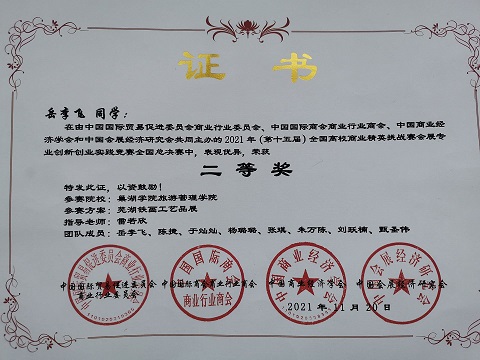 证书
岳李飞 同学：
在由中国国际贸易促进委员会商业行业委员会、中国国际商会商业行业商会、中国商业经
济学会和中国会展经济研究会共同主办的 2021 年 (第十五届) 全国高校商业精英挑战赛会展专
业创新创业实践竞赛全国总决赛中，表现优异，荣获
二等奖
特发此证，以资鼓励！
参赛院校：巢湖学院旅游管理学院
参赛方案：芜湖铁画工艺品展
指导老师：雷若欣
团队成员：岳李飞、陈捷、于灿灿、杨璐璐、张琪、朱万陈、刘跃楠、甄圣伟
中国国际贸易促进委员会 中国国际商会商业行业商会 中国商业经济学会 中国会展经济研究会
商业行业委员会
2021 年 11 月 20 日